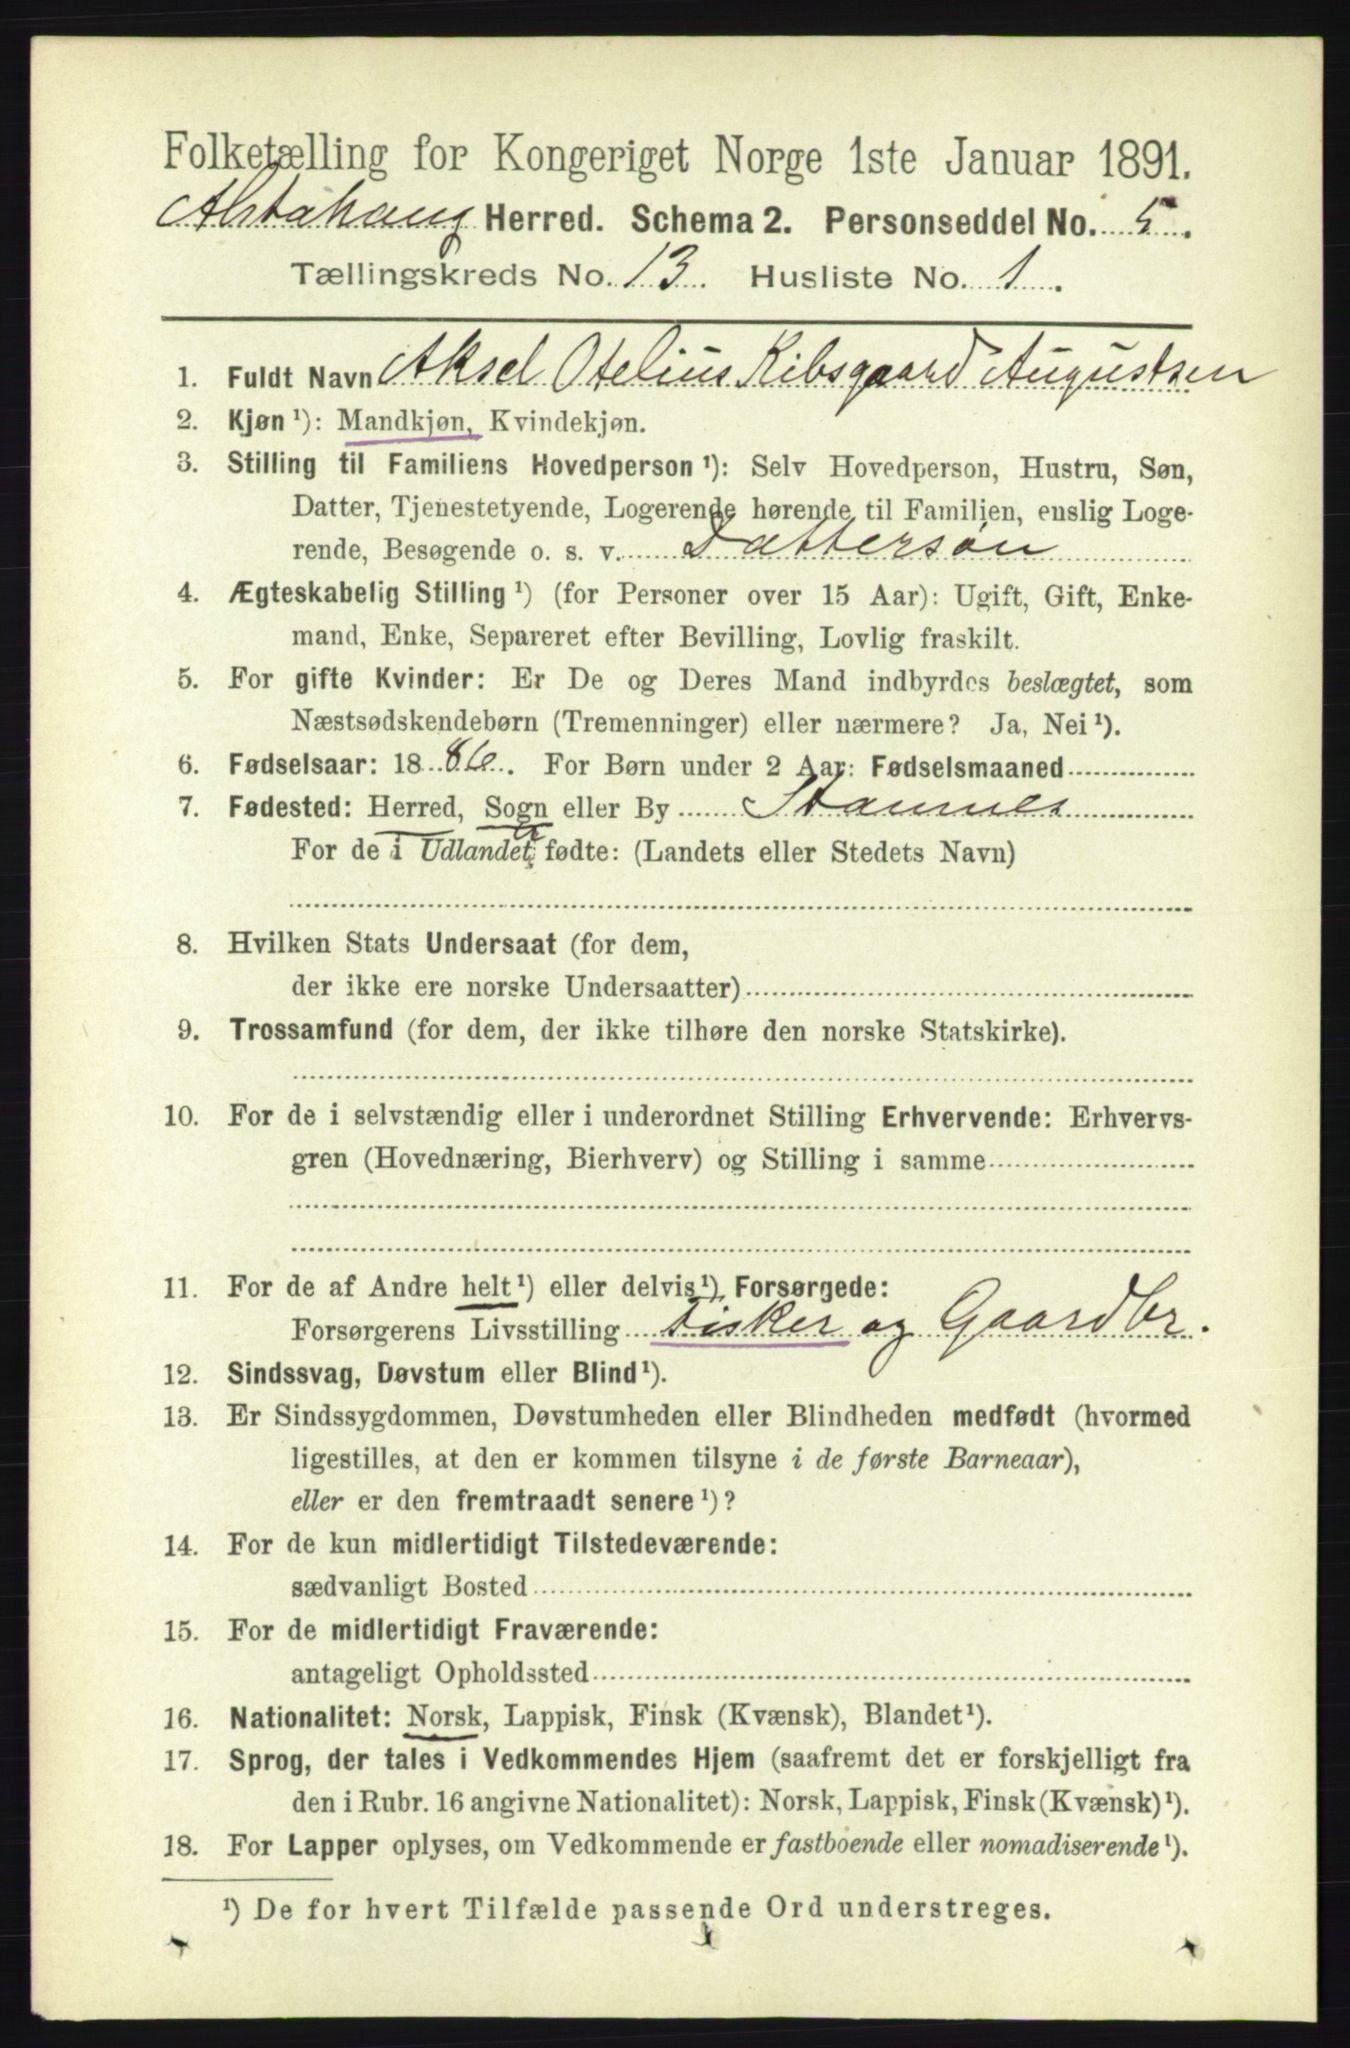 Folketælling for Kongeriget Norge 1ste Januar 1891.
Alstahaug Herred. Schema 2. Personseddel No. 5.
Tællingskreds No. 13. Husliste No. 1.
1. Fuldt Navn Aksel Otelius Kibsgaard Augustsen
2. Kjøn ¹): Mandkjøn, Kvindekjøn.
3. Stilling til Familiens Hovedperson ¹): Selv Hovedperson, Hustru, Søn,
Datter, Tjenestetyende, Logerende hørende til Familien, enslig Loge-
rende, Besøgende o. s. v. Dattersøn
4. Ægteskabelig Stilling ¹) (for Personer over 15 Aar): Ugift, Gift, Enke-
mand, Enke, Separeret efter Bevilling, Lovlig fraskilt.
5. For gifte Kvinder: Er De og Deres Mand indbyrdes beslægtet, som
Næstsødskendebørn (Tremenninger) eller nærmere? Ja, Nei ¹).
6. Fødselsaar: 1886. For Børn under 2 Aar: Fødselsmaaned
7. Fødested: Herred, Sogn eller By Stamnes
For de i Udlandet fødte: (Landets eller Stedets Navn)
8. Hvilken Stats Undersaat (for dem,
der ikke ere norske Undersaatter)
9. Trossamfund (for dem, der ikke tilhøre den norske Statskirke).
10. For de i selvstændig eller i underordnet Stilling Erhvervende: Erhvervs-
gren (Hovednæring, Bierhverv) og Stilling i samme
11. For de af Andre helt ¹) eller delvis ¹) Forsørgede:
Forsørgerens Livsstilling Fisker og Gaardbr.
12. Sindssvag, Døvstum eller Blind ¹).
13. Er Sindssygdommen, Døvstumheden eller Blindheden medfødt (hvormed
ligestilles, at den er kommen tilsyne i de første Barneaar),
eller er den fremtraadt senere ¹)?
14. For de kun midlertidigt Tilstedeværende:
sædvanligt Bosted
15. For de midlertidigt Fraværende:
antageligt Opholdssted
16. Nationalitet: Norsk, Lappisk, Finsk (Kvænsk), Blandet ¹).
17. Sprog, der tales i Vedkommendes Hjem (saafremt det er forskjelligt fra
den i Rubr. 16 angivne Nationalitet): Norsk, Lappisk, Finsk (Kvænsk) ¹).
18. For Lapper oplyses, om Vedkommende er fastboende eller nomadiserende ¹).
¹) De for hvert Tilfælde passende Ord understreges.